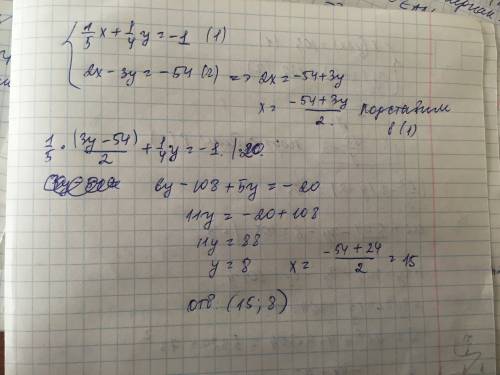 { 1/5 x + 1/4 y = -1 (1)
2x - 3y = -54 (2) => 2x = -54+3y
x = (-54+3y)/2 . подставим
в (1)
1/5 · (3y-54)/2 + 1/4 y = -1. | ·20.
6y - 108 + 5y = -20
11y = -20 + 108
11y = 88
y = 8 x = (-54+24)/2 = 15
отв. (15; 8)